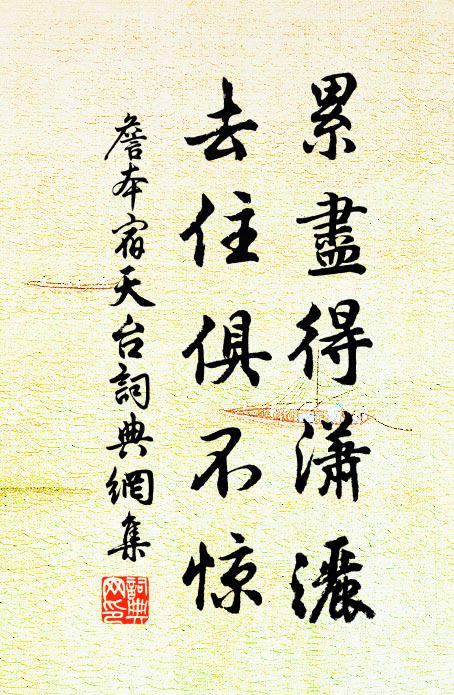 累盡得瀟灑
去住俱不惊
詹本宿天台詞典網集
詞典
网印